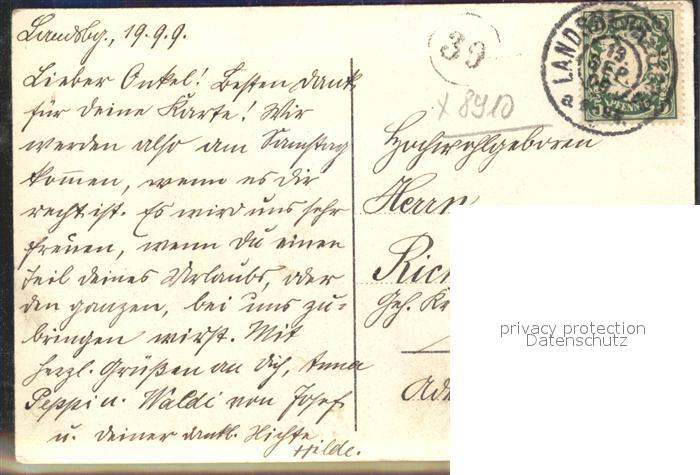 Landsbg., 19.9.9.
Lieber Onkel! Besten Dank
für deine Karte! Wir
werden also am Samstag
kommen, wenn es dir
recht ist. Es wird uns sehr
freuen, wenn du einen
Teil deines Urlaubs, oder
den ganzen, bei uns zu-
bringen wirst. Mit
herzl. Grüßen an dich, Anna
Peppi u. Waldi von Josef
u. deiner dankb. Nichte
Hilde.
39
x 8910
LANDSBERG
19
SEP
BAYERN
5 PFENNIG 5
Hochwohlgeboren
Herrn
Rich
Geh. Kr
privacy protection
Datenschutz